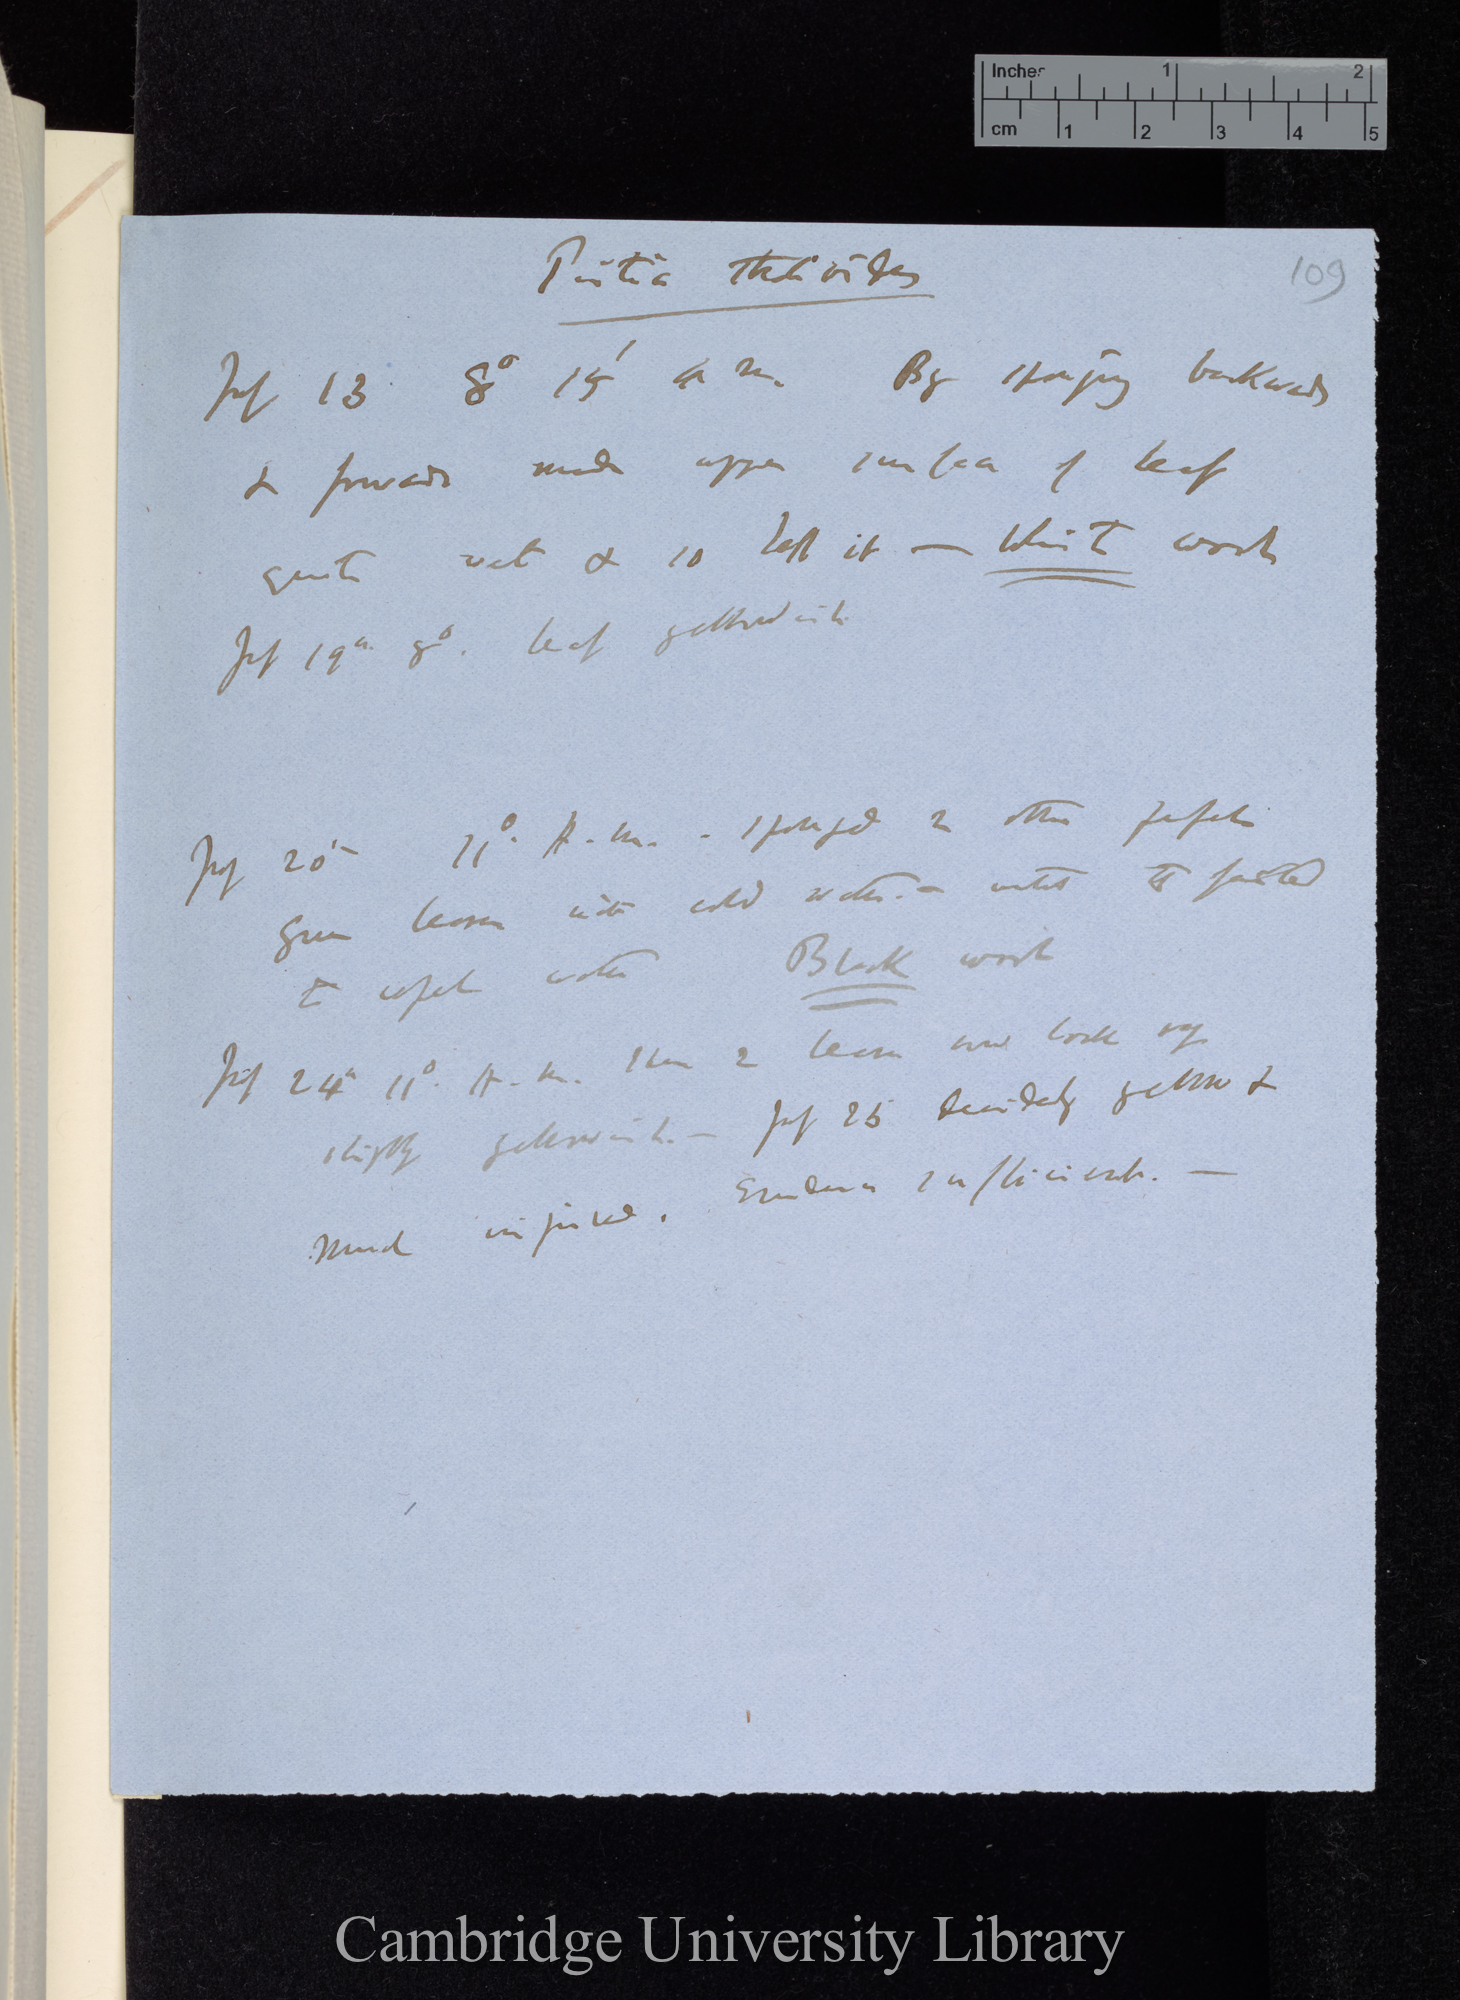 Inches 1 2
cm 1 2 3 4 5
109
Pistia
13 8° 15' a m. By sponging backwards
& forwards made upper surface of leaf
quite wet & so left it — White wool
19th 8°. leaf yellowish
20th 11°. A. m. - sponged 2 other perfect
green leaves with cold water. — until
to repel water Black wool
24th 11°. A. m. 2 leaves now look very
slightly yellowish. — 25 decidedly yellow &
much injured. Evidence sufficient. —
Cambridge University Library